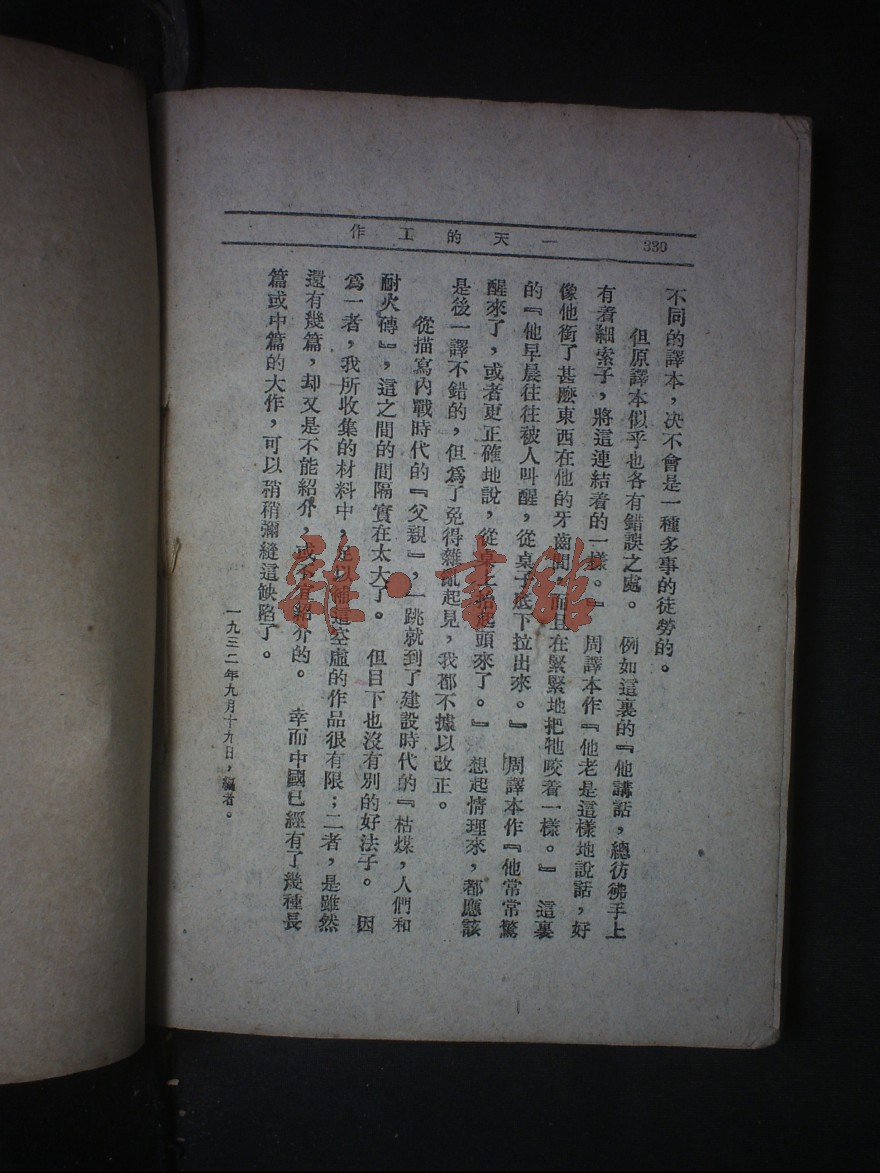 330
一天的工作
不同的譯本，決不會是一種多事的徒勞的。
但原譯本似乎也各有錯誤之處。例如這裏的『他講話，總彷彿手上
有着細索子，將這連結着的一樣。』周譯本作『他老是這樣地說話，好
像他銜了甚麼東西在他的牙齒間，而且在緊緊地把牠咬着一樣。』這裏
的『他早晨往往被人叫醒，從桌子底下拉出來。』周譯本作『他常常驚
醒來了，或者更正確地說，從桌上抬起頭來了。』想起情理來，都應該
是後一譯不錯的，但爲了免得雜亂起見，我都不據以改正。
從描寫內戰時代的『父親』，一跳就到了建設時代的『枯煤，人們和
耐火磚』，這之間的間隔實在太大了。但目下也沒有別的好法子。因
爲一者，我所收集的材料中，足以補這空虛的作品很有限；二者，是雖然
還有幾篇，却又是不能紹介，或不宜紹介的。幸而中國已經有了幾種長
篇或中篇的大作，可以稍稍彌縫這缺陷了。
一九三二年九月十九日，編者。
雜·書館